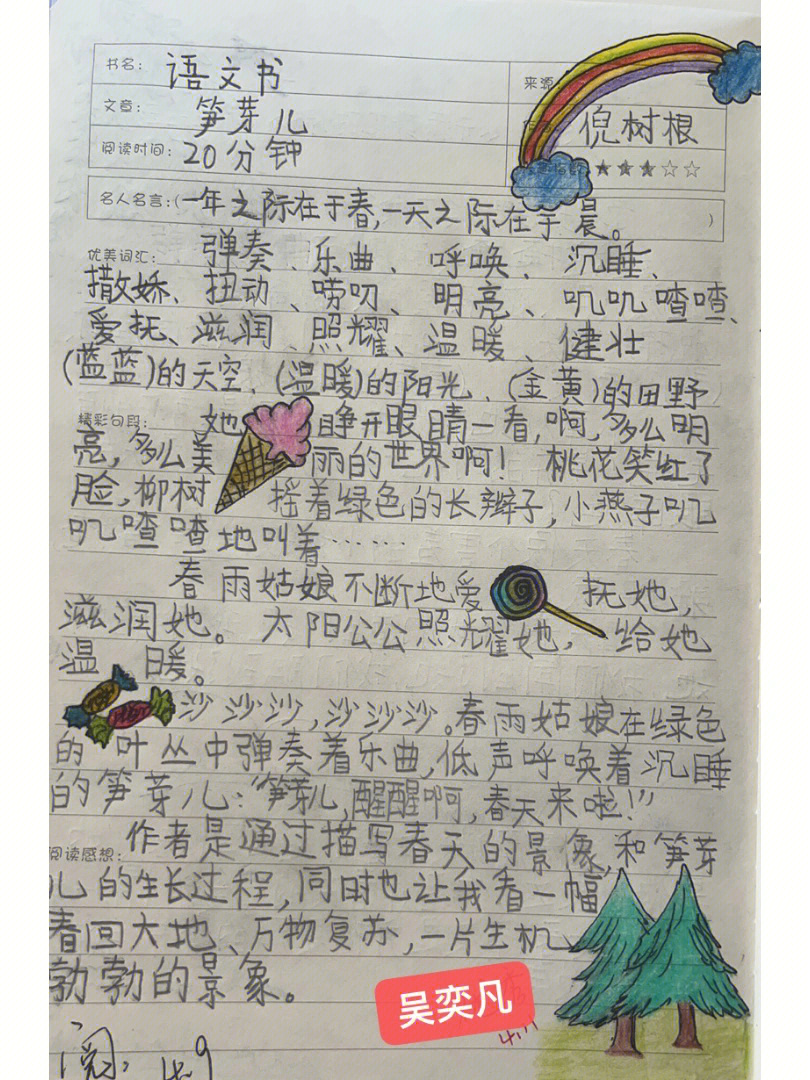 书名: 语文书
来源
文章: 笋芽儿
倪树根
阅读时间: 20分钟
★★★☆☆
名人名言:(一年之际在于春,一天之际在于晨。)
优美词汇: 弹奏、乐曲、呼唤、沉睡、
撒娇、扭动、唠叨、明亮、叽叽喳喳、
爱抚、滋润、照耀、温暖、健壮
(蓝蓝)的天空、(温暖)的阳光、(金黄)的田野
精彩句段: 她睁开眼睛一看,啊,多么明
亮,多么美丽的世界啊! 桃花笑红了
脸,柳树摇着绿色的长辫子,小燕子叽
叽喳喳地叫着……
春雨姑娘不断地爱抚她,
滋润她。太阳公公照耀她,给她
温暖。
沙沙沙,沙沙沙。春雨姑娘在绿色
的叶丛中弹奏着乐曲,低声呼唤着沉睡
的笋芽儿:“笋芽儿,醒醒啊,春天来啦!”
阅读感想: 作者是通过描写春天的景像,和笋芽
儿的生长过程,同时也让我看一幅
春回大地、万物复苏,一片生机
勃勃的景象。
吴奕凡
阅 4.9